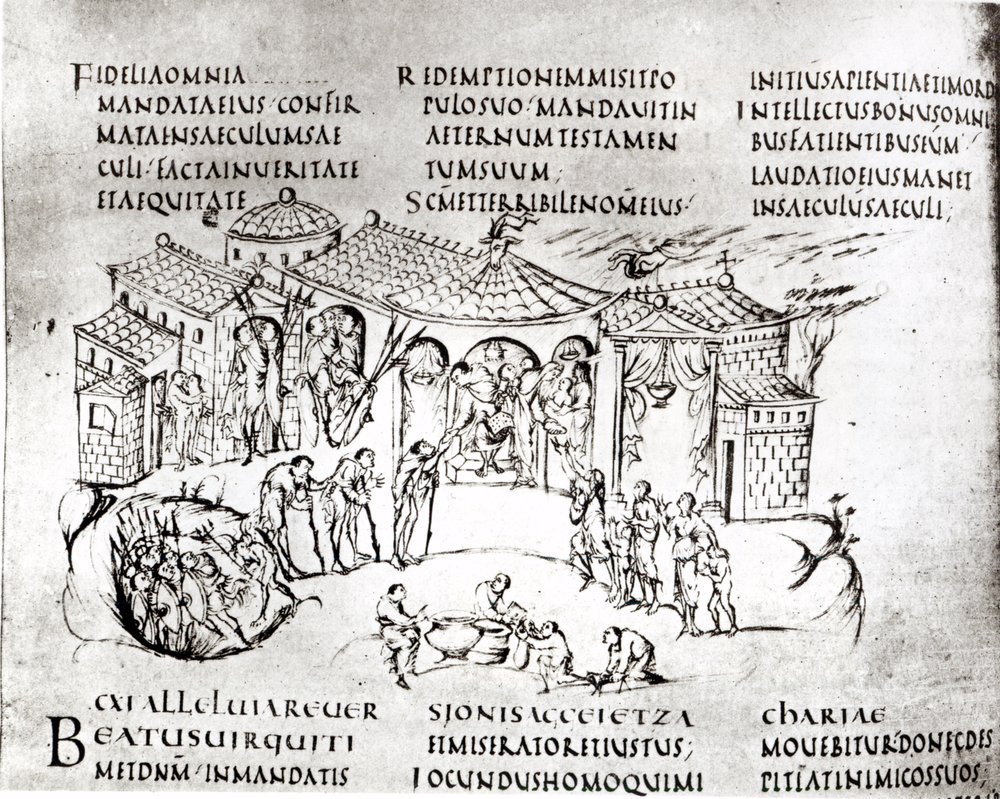 FIDELIAOMNIA
MANDATAEIUS·CONFIR
MATAENSAECULUMSAE
CULI·FACTAINUERITATE
ETAEQUITATE
REDEMPTIONEMMISITPO
PULOSUO·MANDAUITIN
AETERNUMTESTAMEN
TUMSUUM;
SCM̄ETTERRIBILENOM̄EIUS·
INITIŪSAPIENTIAETIMORD
INTELLECTUSBONUSOMNI
BUSFATIENTIBUSEŪM·
LAUDATIOEIUSMANET
INSAECULŪSAECULI;
CXI ALLELUIA REUER
BEATUSUIRQUITI
METDNM̄·INMANDATIS
SIONIS AGGEI ET ZA
ETMISERATORETIUSTUS;
IOCUNDUSHOMOQUIMI
CHARIAE
MOUEBITUR·DONECDES
PITIATINIMICOSSUOS;